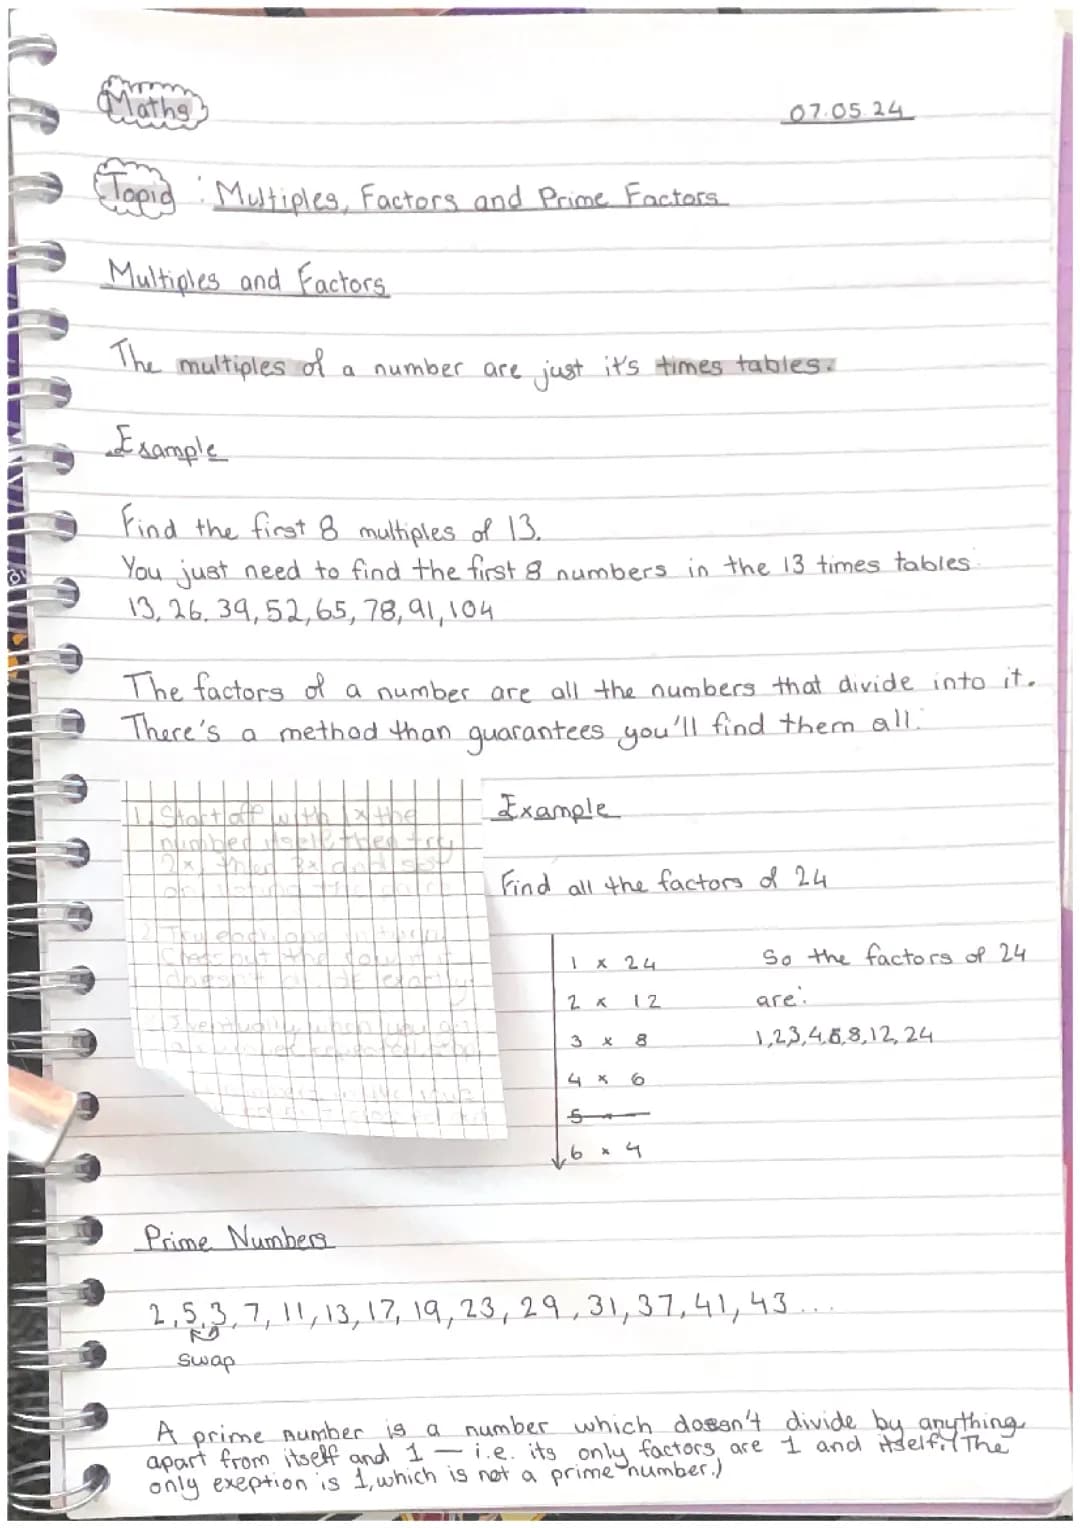 Maths
07.05.24
Topic : Multiples, Factors and Prime Factors
Multiples and Factors
The multiples of a number are just it's times tables.
Example
Find the first 8 multiples of 13.
You just need to find the first 8 numbers in the 13 times tables
13, 26, 39, 52, 65, 78, 91, 104
The factors of a number are all the numbers that divide into it.
There's a method than guarantees you'll find them all.
1. Start off with 1x the
number itself then try
2x, then 3x and so
on
2. Try each one in turn
Cross out the
doesn't exactly
Eventually when you
Example
Find all the factors of 24
1 x 24
2 x 12
3 x 8
4 x 6
5 x
6 x 4
So the factors of 24
are:
1,2,3,4,6,8,12,24
Prime Numbers
2,5,3,7,11,13,17,19,23,29,31,37,41,43...
swap
A prime number is a number which doesn't divide by anything
apart from itself and 1 — i.e. its only factors are 1 and itself. (The
only exeption is 1, which is not a prime number.)